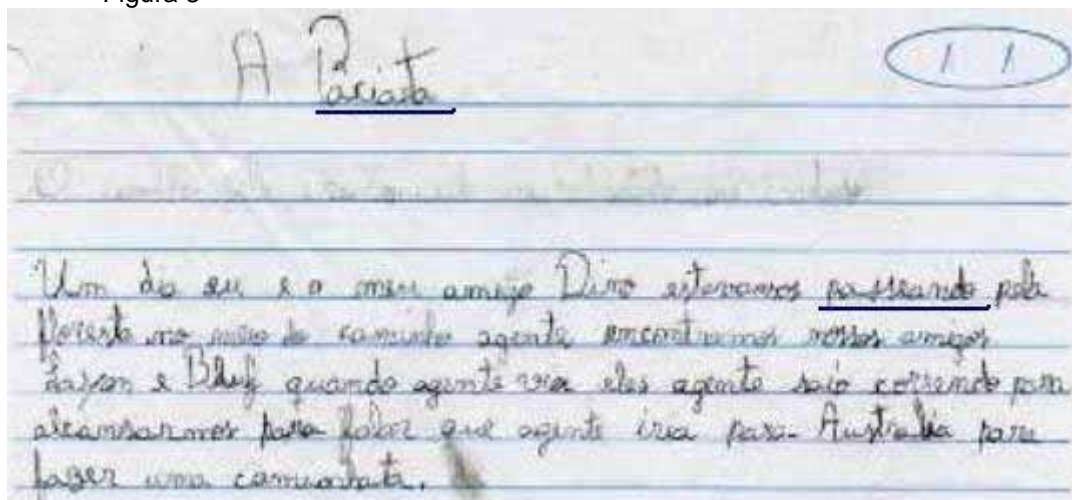 Figura
A Paciata
1 1
Um dia eu e o meu amigo Dino estavamos passeando pela
floresta no meio do caminho agente encontramos nossos amigos
e quando agente viu eles agente saio correndo para
alcansarmos para falar que agente iria para Australia para
fazer uma